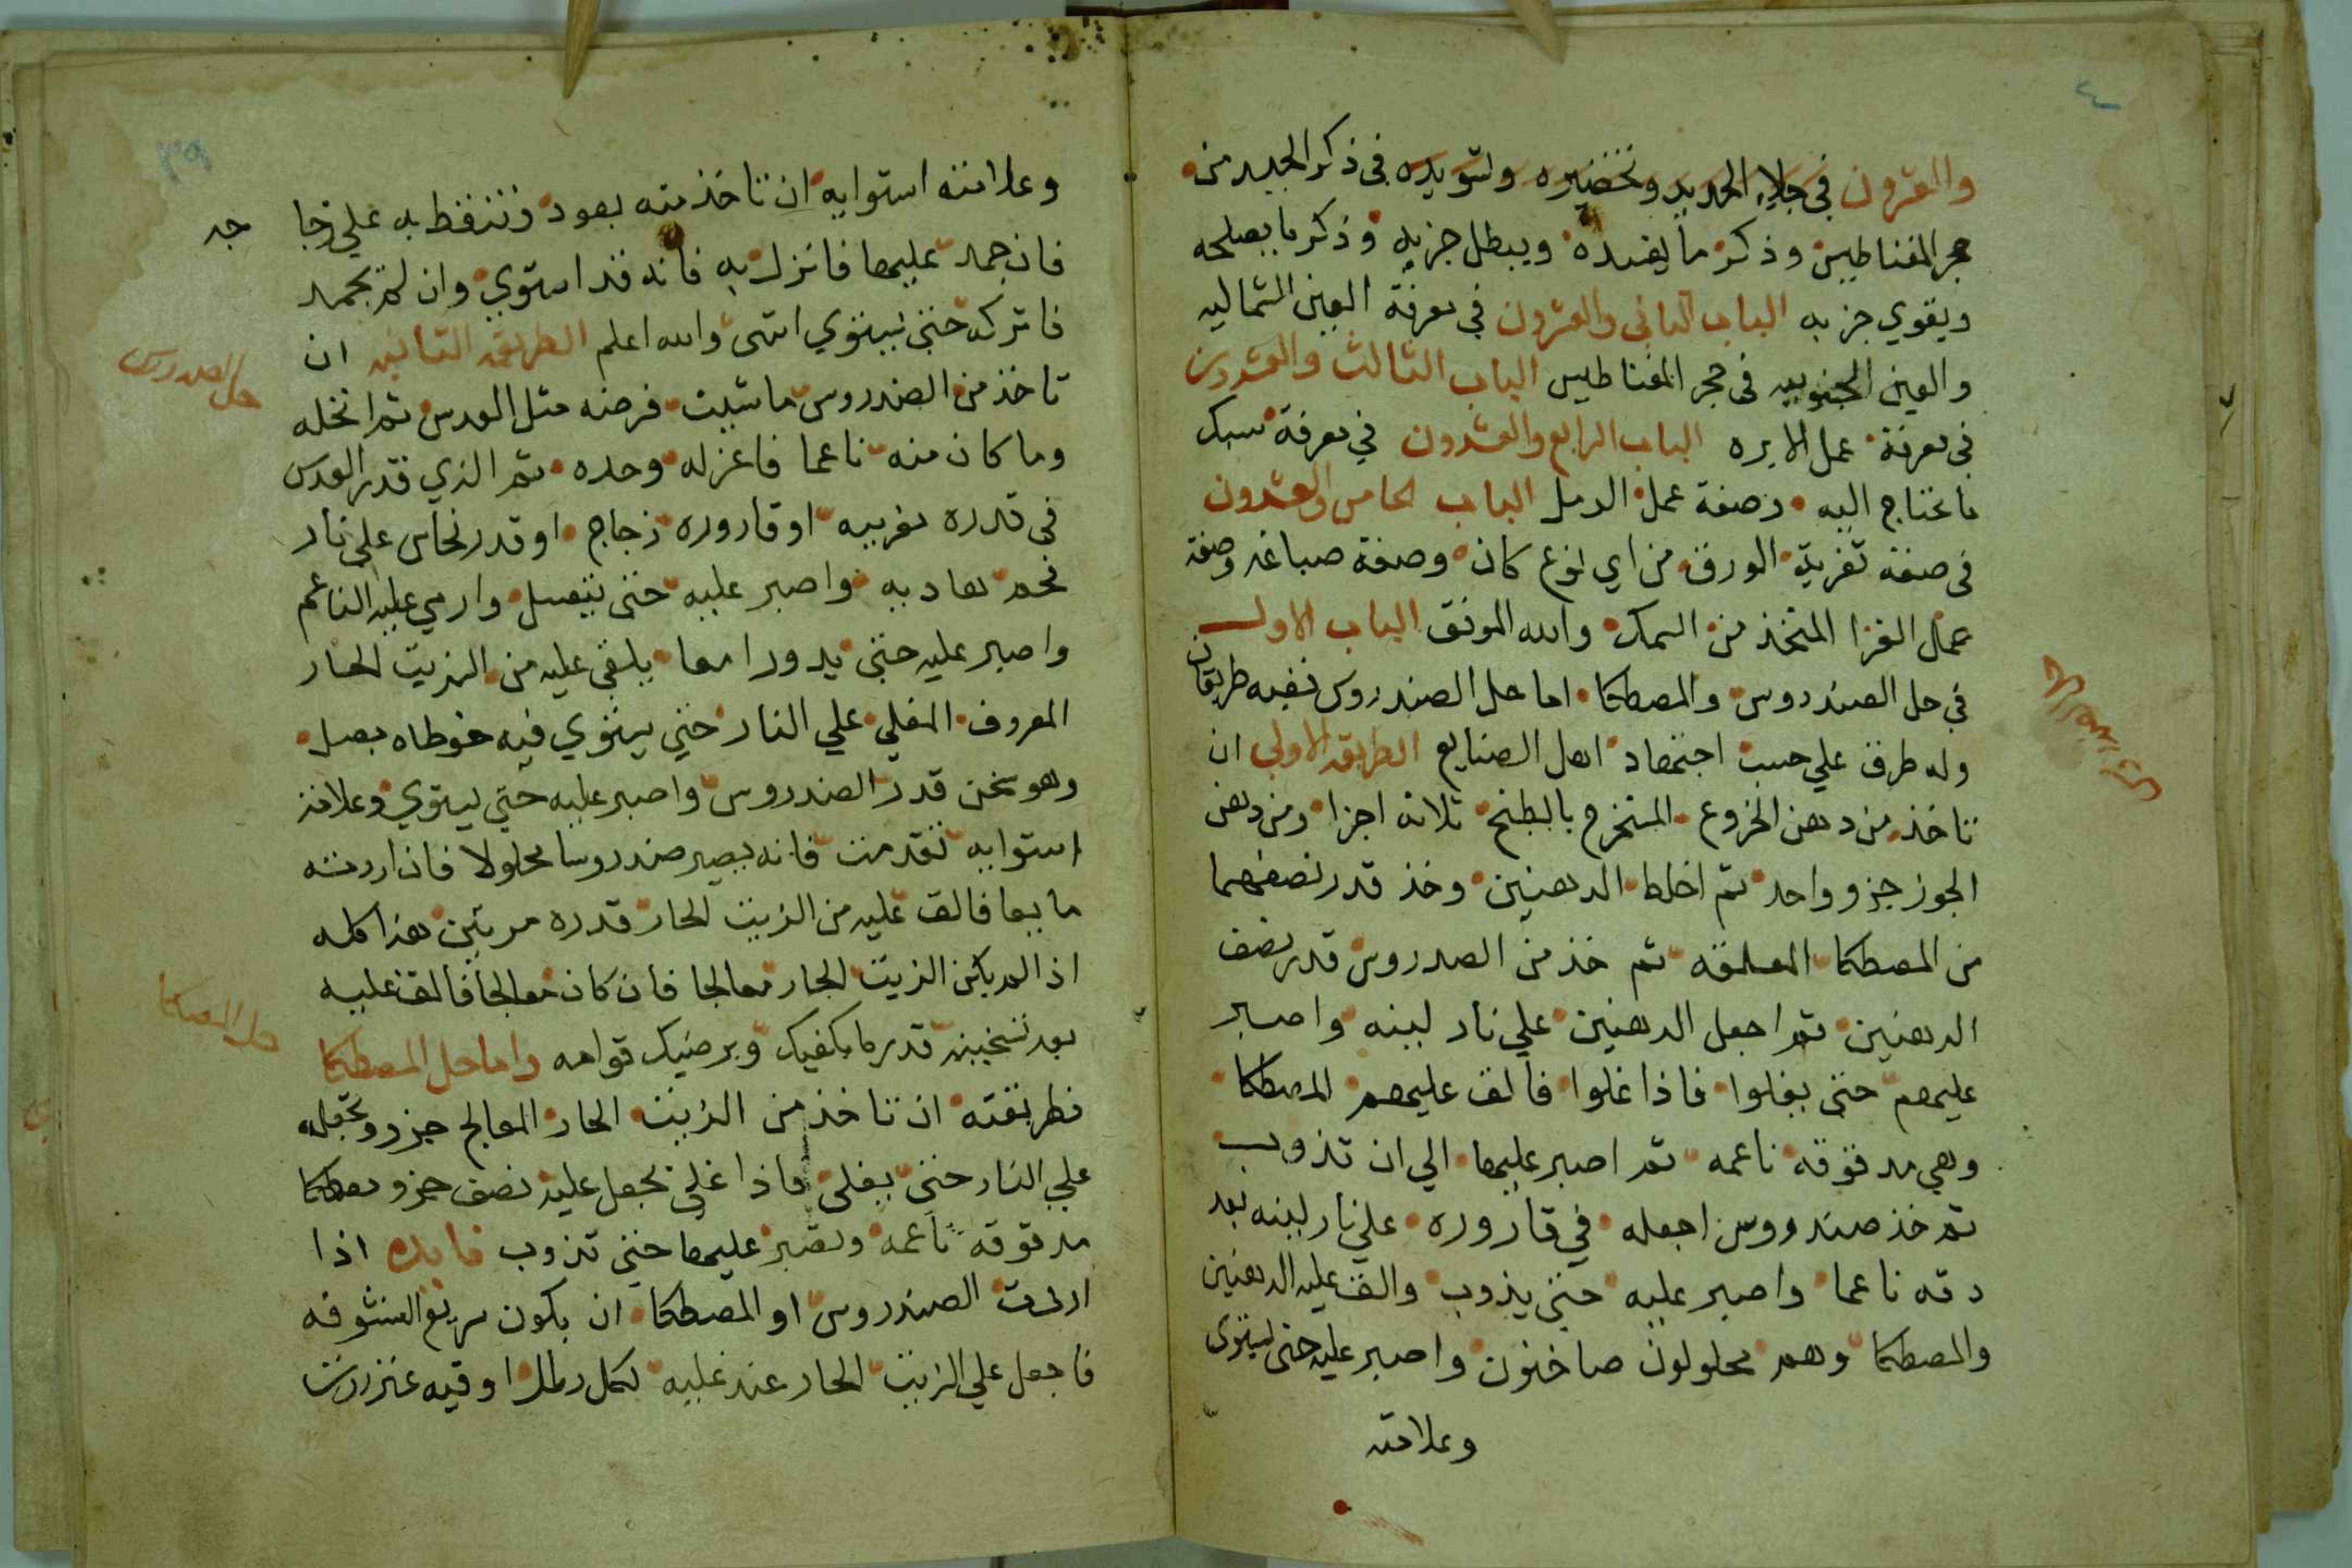 والعشرون في جلاء الحديد وتخضيره وتسويده في ذكر الجيد من
حجر المغناطيس وذكر ما يفسده ويبطل جزبه وذكر ما يصلحه
ويقوي جزبه الباب الثاني والعشرون في معرفة العين الشماليه
والعين الجنوبيه في حجر المغناطيس الباب الثالث والعشرون
في معرفة عمل الابره الباب الرابع والعشرون في معرفة سبك
ما تحتاج اليه وصفة عمل الرمل الباب الخامس والعشرون
في صفة تغرية الورق من اي نوع كان وصفة صباغه وصفة
عمل الغرا المتخذ من السمك والله الموفق الباب الاول
في حل الصندروس والمصطكا اما حل الصندروس ففيه طريقان
وله طرق علي حسب اجتهاد اهل الصنايع الطريقه الاولي ان
تاخذ من دهن الخروع المستخرج بالطبخ ثلاثه اجزا ومن دهن
الجوز جزو واحد ثم اخلط الدهنين وخذ قدر نصفهما
من المصطكا المعلقه ثم خذ من الصدروس قدر نصف
الدهنين ثم اجعل الدهنين علي نار لينه واصبر
عليهم حتي يغلوا فاذا غلوا فالق عليهم المصطكا
وهي مدقوقه ناعمه ثم اصبر عليها الي ان تذوب
ثم خذ صندروس اجعله في قاروره علي نار لينه بعد
دقه ناعما واصبر عليه حتي يذوب والق عليه الدهنين
والمصطكا وهم محلولون صاخنون واصبر عليه حتي يستوي
وعلامته
وعلامته استوايه ان تاخذ منه بعود وتنقط به علي زجا جه
فان جمد عليها فانزل به فانه قد استوي وان لم يجمد
فاتركه حتي يستوي انتهي والله اعلم الطريقه الثانيه ان
حل الصندروس
تاخذ من الصندروس ما شيت فرضه مثل العدس ثم انخله
وما كان منه ناعما فاعزله وحده ثم الذي قدر العدس
في قدره مغربيه او قاروره زجاج او قدر نحاس علي نار
فحم هاديه واصبر عليه حتي يتعسل وارمي عليه الناعم
واصبر عليه حتي يدورا معا يلقي عليه من الزيت الحار
المعروف المغلي علي النار حتي يستوي فيه خوطاه بصل
وهو سخن قدر الصندروس واصبر عليه حتي يستوي وعلامة
استوايه تقدمت فانه يصير صندروسا محلولا فان اردته
مايعا فالق عليه من الزيت الحار قدره مرتين هذا كله
اذا لم يكن الزيت الحار معالجا فان كان معالجا فالق عليه
بعد تسخينه قدر ما يكفيك ويرضيك قوامه واما حل المصطكا
حل المصطكا
فطريقته ان تاخذ من الزيت الحار المعالج جزو وتجعله
علي النار حتي يغلي فاذا غلي تجعل عليه نصف جزو مصطكا
مدقوقه ناعمه وتصبر عليها حتي تذوب فايده اذا
اردت الصندروس او المصطكا ان يكون سريع النشوفه
فاجعل علي الزيت الحار عند غليه لكل رطل اوقيه عنزروت